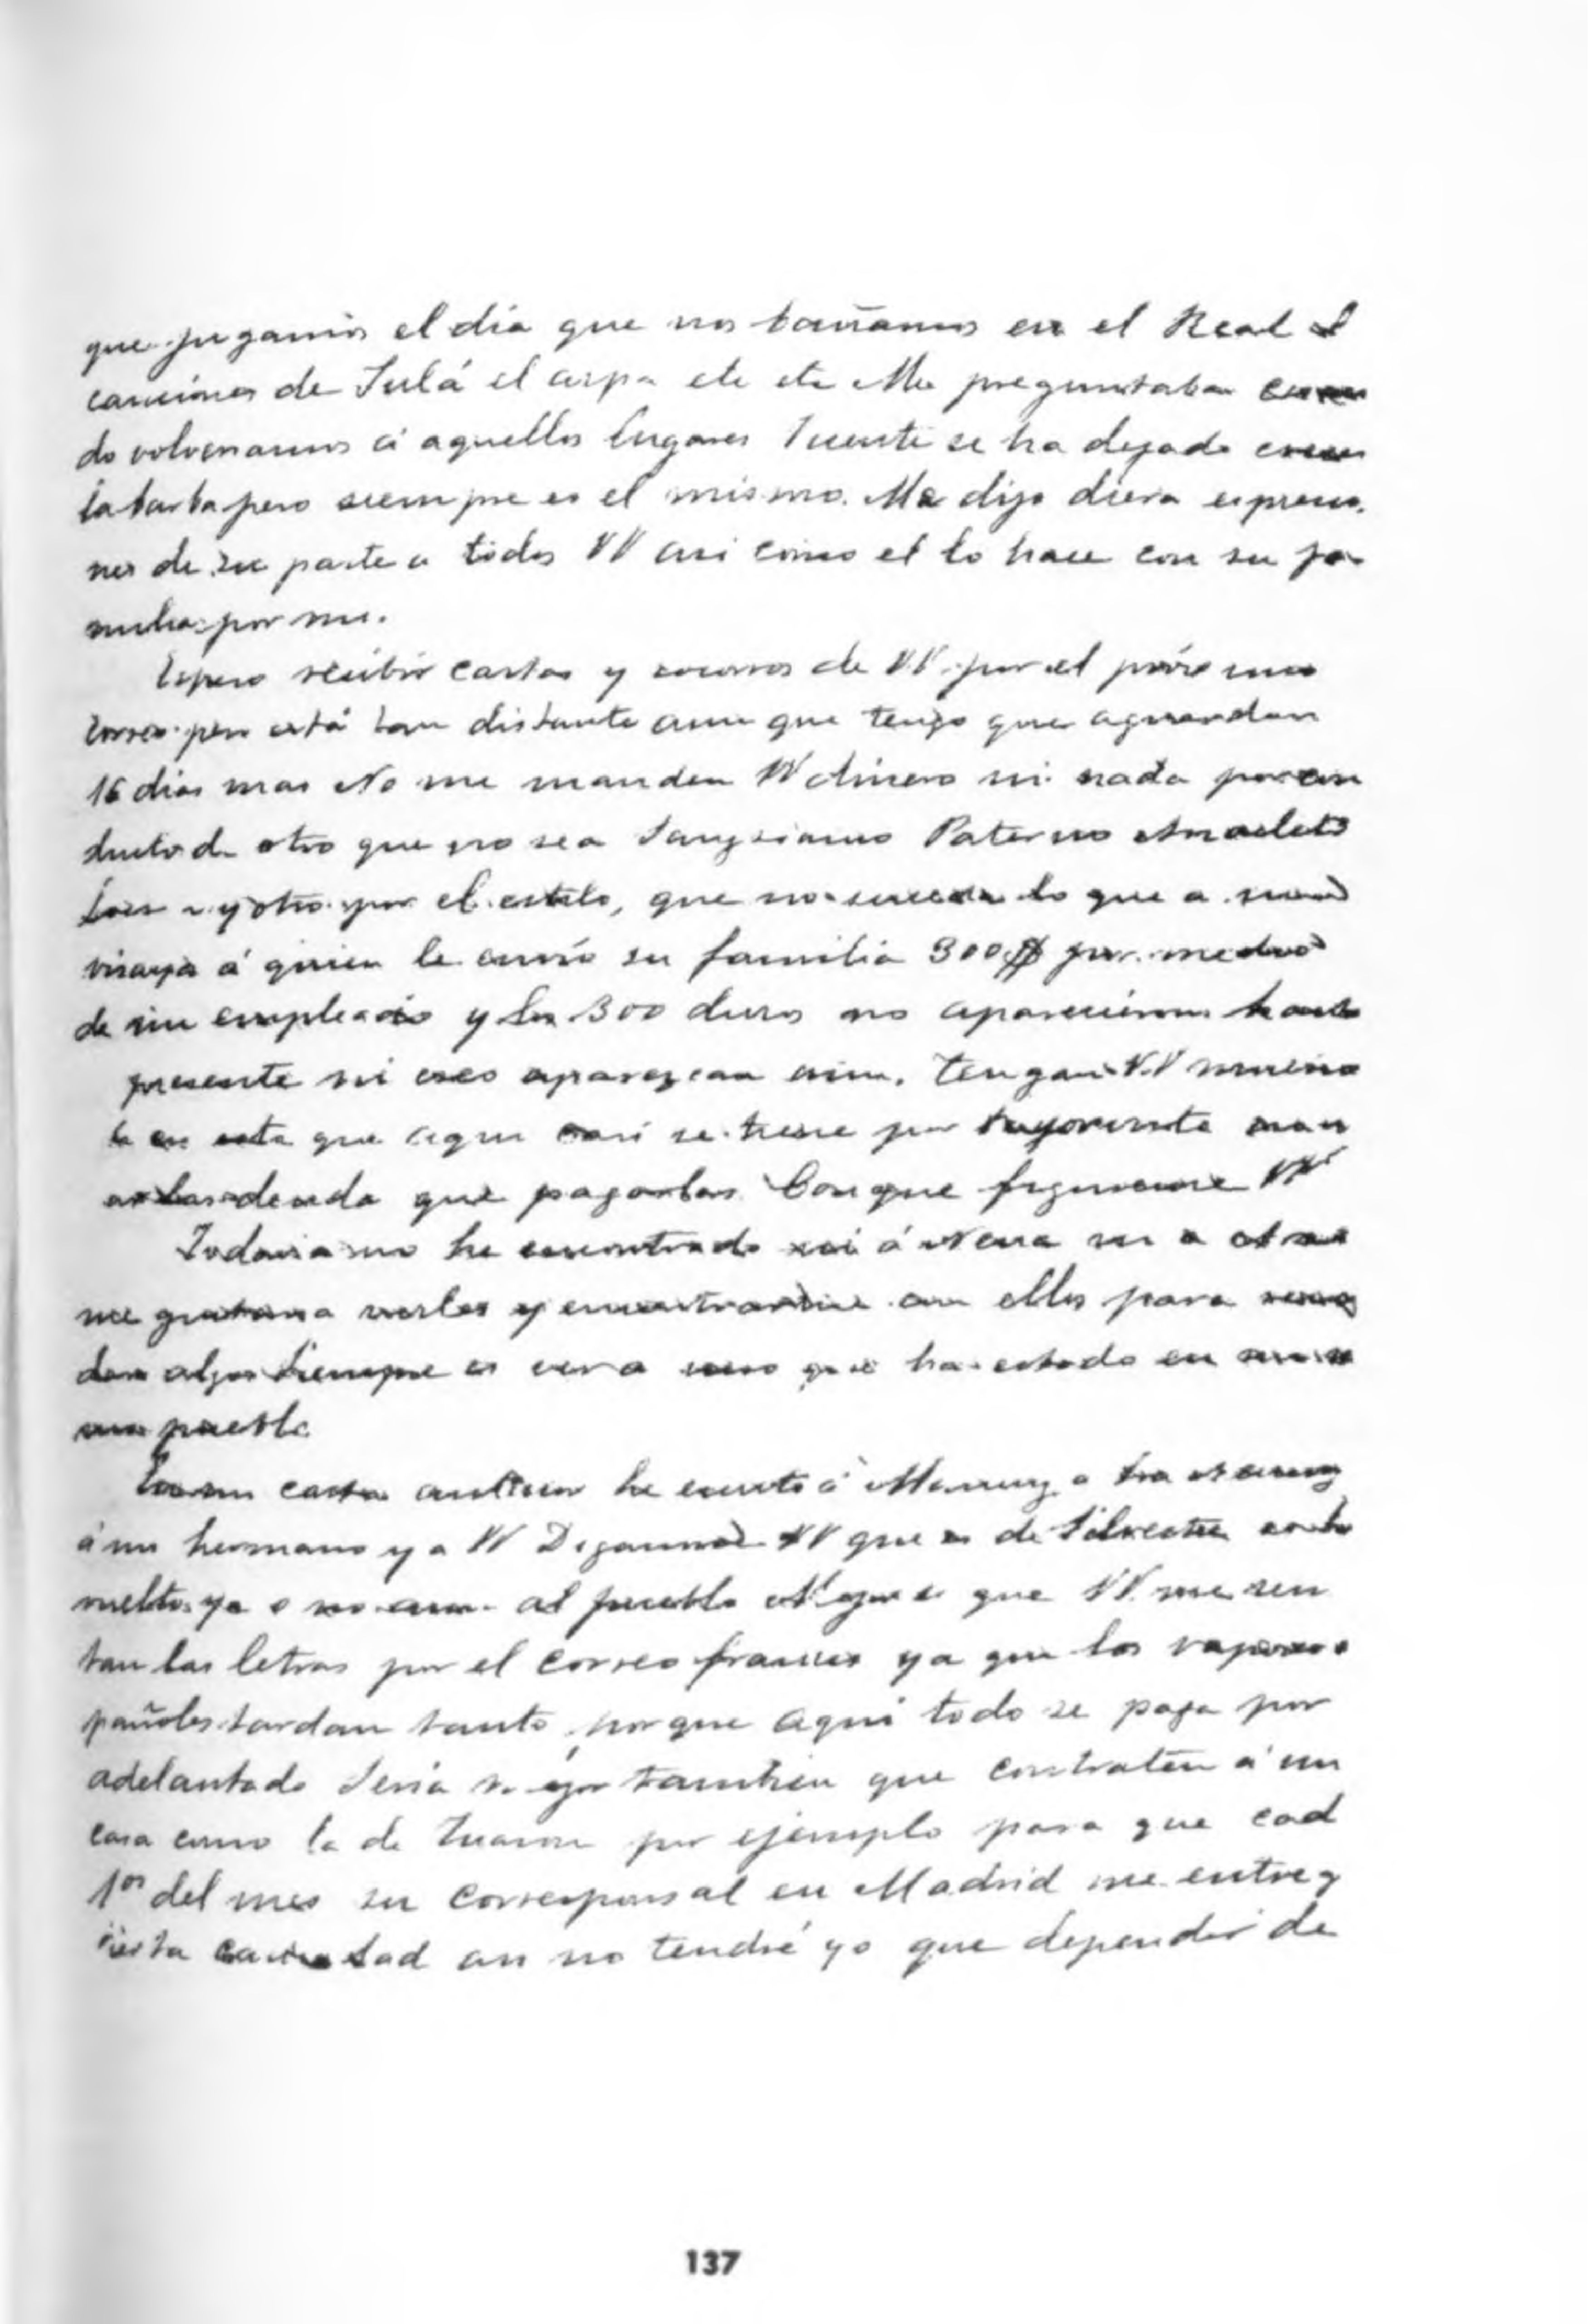 que jugamos el dia que nos bañamos en el Real
canciones de Sulá el arpa etc etc Me preguntaba cuan
do volveriamos á aquellos lugares Vicente se ha dejado crecer
la barba pero siempre es el mismo. Me dijo diera espresio
nes de su parte a todos VV asi como el lo hace con su fa
milia por mi.
Espero recibir cartas y socorros de VV. por el próximo
correo pero está tan distante aun que tengo que aguardar
16 dias mas No me manden VV dinero ni nada por con
ducto de otro que no sea Sanguiano Paterno Anacleto
y otro por el estilo, que no suceda lo que a un
visaya á quien le envió su familia 300 $ por medio
de un empleado y los 300 duros no aparecieron hasta
presente ni creo aparezcan aun. Tengan VV
en esta que aqui casi se tiene por
deuda que pagarlas. Conque figurense VV
Todavia no he encontrado ni á ni a otros
me gustaria verlos y encontrarme con ellos para
algo Siempre es uno que ha estado en
pueblo
En mi carta anterior he escrito á
á mi hermano y a VV Diganme VV que es de Silvestre
vuelto ya o no aun al pueblo Mejor es que VV me
tan las letras por el correo frances ya que los vapores
pañoles tardan tanto, porque aqui todo se paga por
adelantado Seria mejor tambien que contraten á un
casa como la de Tuason por ejemplo para que cad
1os del mes su corresponsal en Madrid me entreg
cierta cantidad asi no tendré yo que depender de
137